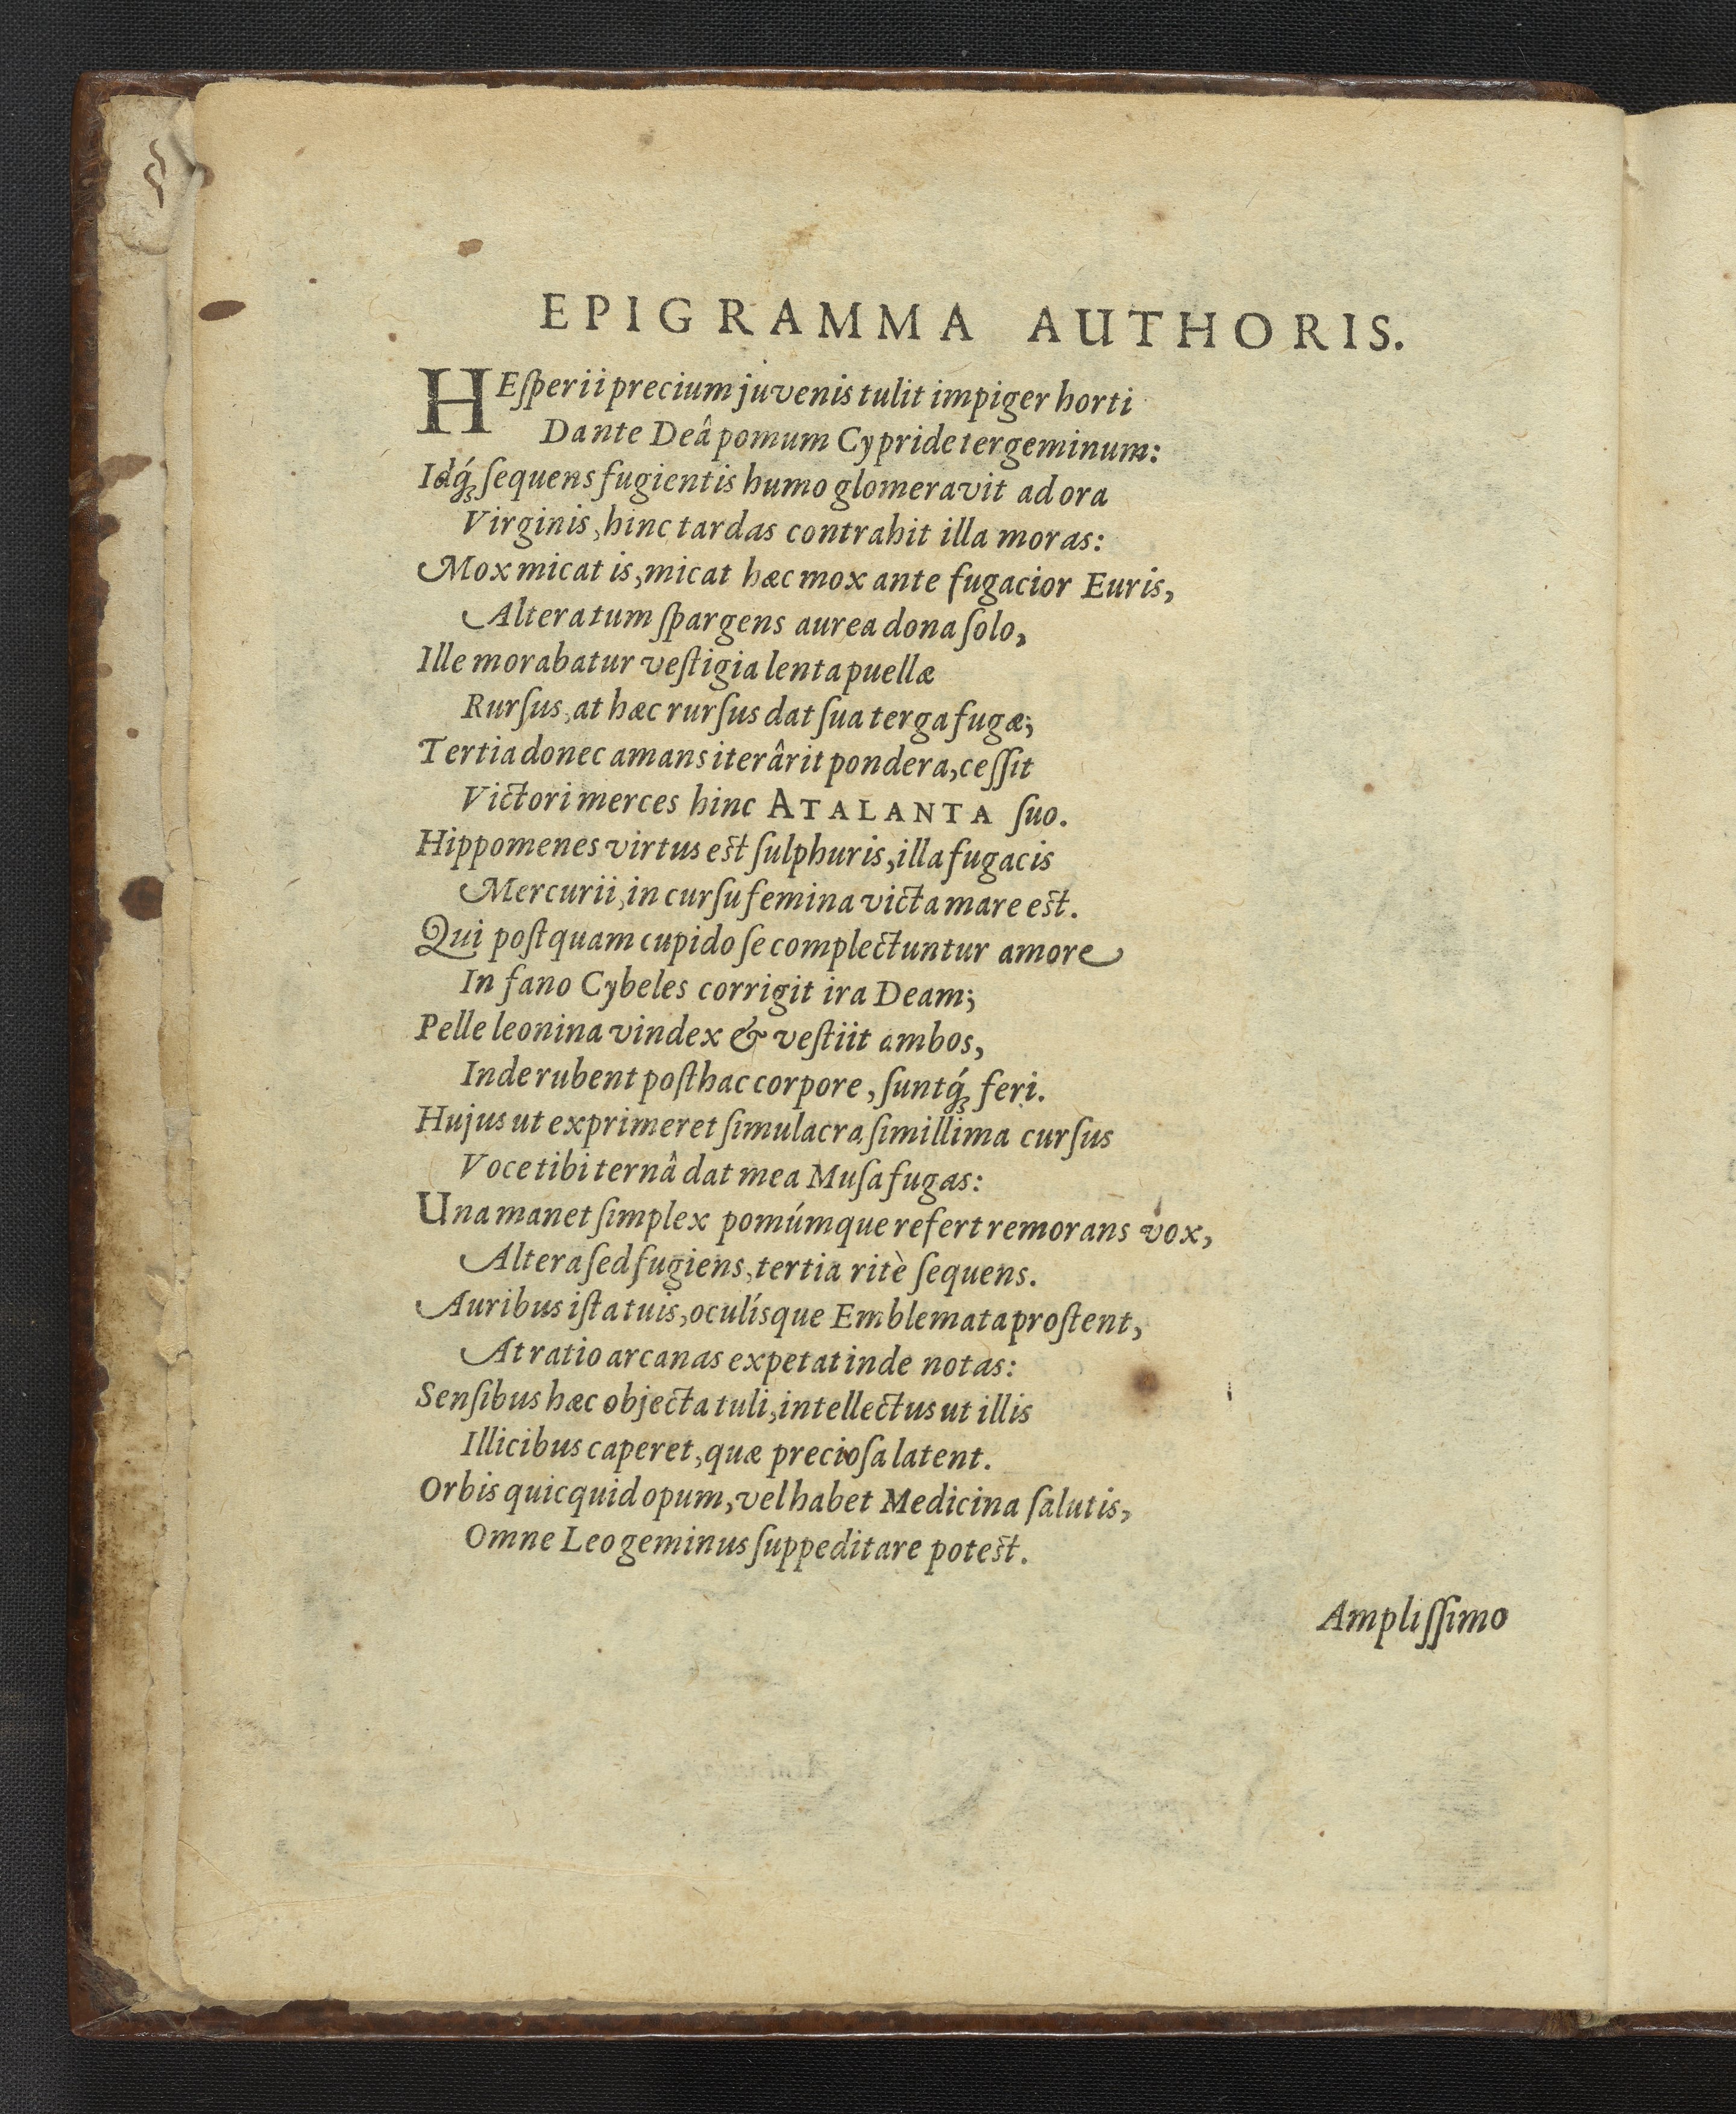 EPIGRAMMA AUTHORIS.
HEſperii precium juvenis tulit impiger horti
Dante Deâ pomum Cypride tergeminum:
Idq́ꝫ ſequens fugientis humo glomeravit ad ora
Virginis, hinc tardas contrahit illa moras:
Mox micat is, micat hæc mox ante fugacior Euris,
Altera tum ſpargens aurea dona ſolo,
Ille morabatur veſtigia lenta puellæ
Rurſus, at hæc rurſus dat ſua terga fugæ;
Tertia donec amans iterârit pondera, ceſſit
Victori merces hinc ATALANTA ſuo.
Hippomenes virtus est ſulphuris, illa fugacis
Mercurii, in curſu femina victa mare est.
Qui poſtquam cupido ſe complectuntur amore
In fano Cybeles corrigit ira Deam;
Pelle leonina vindex & veſtiit ambos,
Inde rubent poſthac corpore, ſuntq́ꝫ feri.
Hujus ut exprimeret ſimulacra ſimillima curſus
Voce tibi ternâ dat mea Muſa fugas:
Una manet ſimplex pomúmque refert remorans vox,
Altera ſed fugiens, tertia ritè ſequens.
Auribus iſta tuis, oculísque Emblemata proſtent,
At ratio arcanas expetat inde notas:
Senſibus hæc objecta tuli, intellectus ut illis
Illicibus caperet, quæ precioſa latent.
Orbis quicquid opum, vel habet Medicina ſalutis,
Omne Leo geminus ſuppeditare potest.
Ampliſſimo